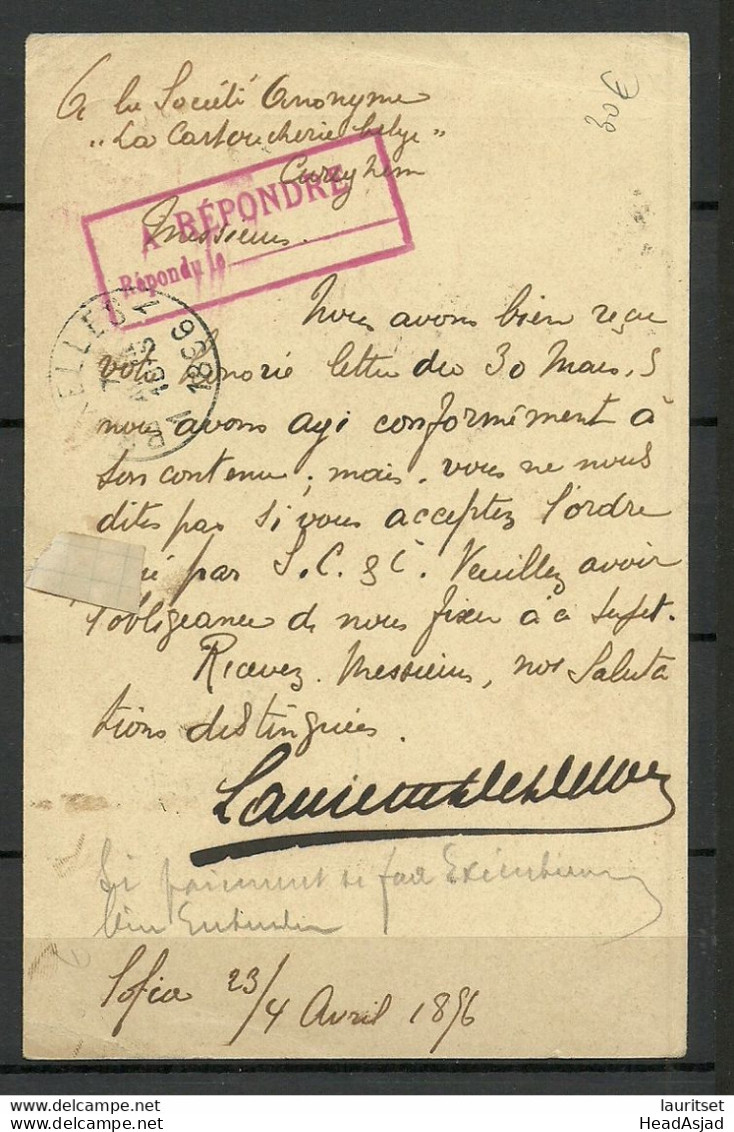 A la Société Anonyme
"La Cartoucherie belge"
Cureghem
30€
A RÉPONDRE
Répondu le
Messieurs.
BRUXELLES 1
1896
Nous avons bien reçu
votre honorée lettre du 30 Mars, &
nous avons agi conformément à
son contenu; mais, vous ne nous
dites pas si vous acceptez l'ordre
par S. C. & C. Veuillez avoir
l'obligeance de nous fixer à ce sujet.
Recevez. Messieurs, nos Saluta
tions distinguées.
Si paiement se fait
bien Entendu
Sofia 23/4 Avril 1896
lauritset
HeadAsjad